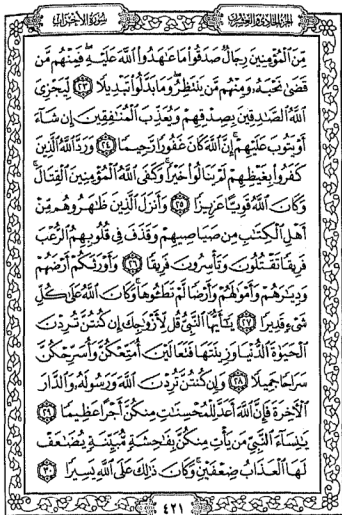 الجزء الحادي والعشرون
سورة الأحزاب
مِّنَ ٱلْمُؤْمِنِينَ رِجَالٌ صَدَقُوا۟ مَا عَٰهَدُوا۟ ٱللَّهَ عَلَيْهِ فَمِنْهُم مَّن
قَضَىٰ نَحْبَهُۥ وَمِنْهُم مَّن يَنتَظِرُ وَمَا بَدَّلُوا۟ تَبْدِيلًا ٢٣ لِّيَجْزِىَ
ٱللَّهُ ٱلصَّٰدِقِينَ بِصِدْقِهِمْ وَيُعَذِّبَ ٱلْمُنَٰفِقِينَ إِن شَآءَ
أَوْ يَتُوبَ عَلَيْهِمْ إِنَّ ٱللَّهَ كَانَ غَفُورًا رَّحِيمًا ٢٤ وَرَدَّ ٱللَّهُ ٱلَّذِينَ
كَفَرُوا۟ بِغَيْظِهِمْ لَمْ يَنَالُوا۟ خَيْرًا وَكَفَى ٱللَّهُ ٱلْمُؤْمِنِينَ ٱلْقِتَالَ
وَكَانَ ٱللَّهُ قَوِيًّا عَزِيزًا ٢٥ وَأَنزَلَ ٱلَّذِينَ ظَٰهَرُوهُم مِّنْ
أَهْلِ ٱلْكِتَٰبِ مِن صَيَاصِيهِمْ وَقَذَفَ فِى قُلُوبِهِمُ ٱلرُّعْبَ
فَرِيقًا تَقْتُلُونَ وَتَأْسِرُونَ فَرِيقًا ٢٦ وَأَوْرَثَكُمْ أَرْضَهُمْ
وَدِيَٰرَهُمْ وَأَمْوَٰلَهُمْ وَأَرْضًا لَّمْ تَطَـُٔوهَا وَكَانَ ٱللَّهُ عَلَىٰ كُلِّ
شَىْءٍ قَدِيرًا ٢٧ يَٰٓأَيُّهَا ٱلنَّبِىُّ قُل لِّأَزْوَٰجِكَ إِن كُنتُنَّ تُرِدْنَ
ٱلْحَيَوٰةَ ٱلدُّنْيَا وَزِينَتَهَا فَتَعَالَيْنَ أُمَتِّعْكُنَّ وَأُسَرِّحْكُنَّ
سَرَاحًا جَمِيلًا ٢٨ وَإِن كُنتُنَّ تُرِدْنَ ٱللَّهَ وَرَسُولَهُۥ وَٱلدَّارَ
ٱلْءَاخِرَةَ فَإِنَّ ٱللَّهَ أَعَدَّ لِلْمُحْسِنَٰتِ مِنكُنَّ أَجْرًا عَظِيمًا ٢٩
يَٰنِسَآءَ ٱلنَّبِىِّ مَن يَأْتِ مِنكُنَّ بِفَٰحِشَةٍ مُّبَيِّنَةٍ يُضَٰعَفْ
لَهَا ٱلْعَذَابُ ضِعْفَيْنِ وَكَانَ ذَٰلِكَ عَلَى ٱللَّهِ يَسِيرًا ٣٠
٤٢١